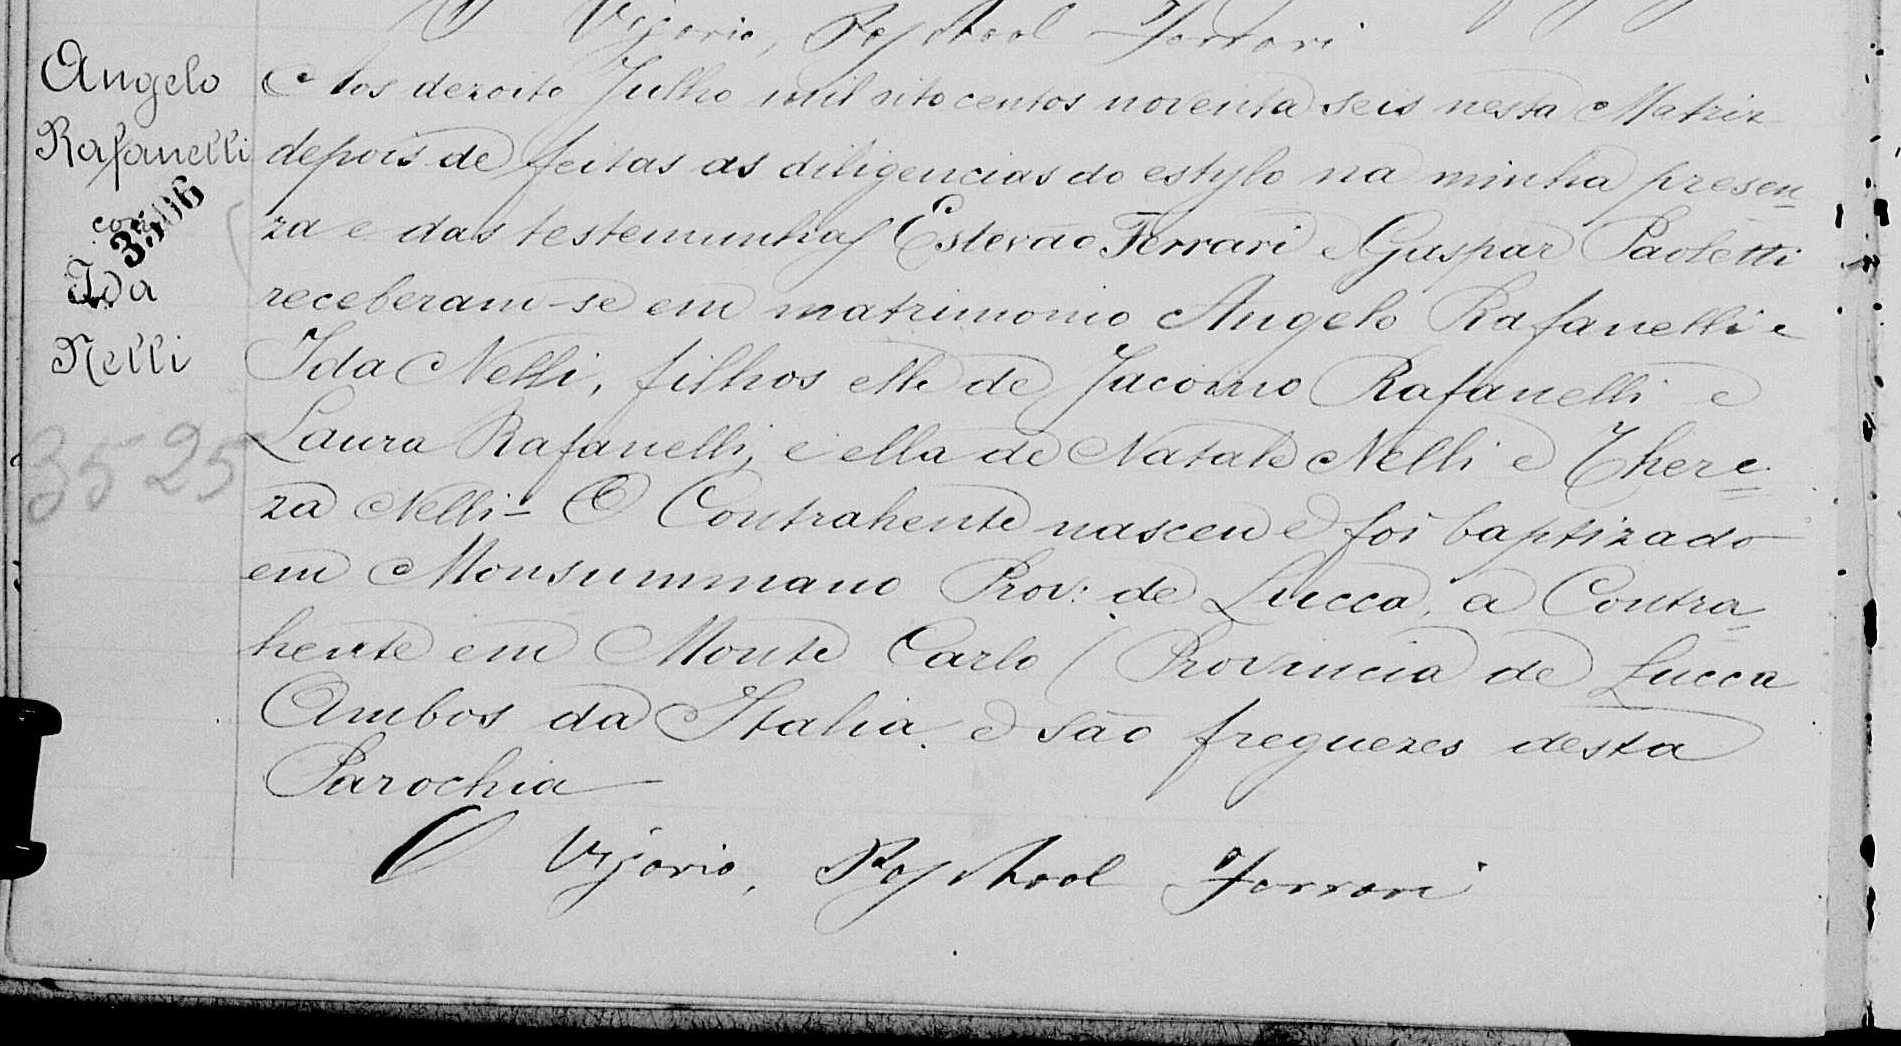 Vigario, Raphael Ferrari
Angelo
Rafanelli
com
3506
Ida
Nelli
3525
Aos dezoito Julho mil oitocentos noventa seis nesta Matriz
depois de feitas as diligencias do estylo na minha presen=
za e das testemunhas Estevão Ferrari e Gaspar Paoletti
receberam-se em matrimonio Angelo Rafanelli e
Ida Nelli, filhos elle de Jacomo Rafanelli e
Laura Rafanelli, e ella de Natale Nelli e There=
za Nelli - O Contrahente nasceu e foi baptizado
em Monsummano Prov: de Lucca, a Contra=
hente em Monte Carlo (Provincia de Lucca
Ambos da Italia. e são freguezes desta
Parochia
O Vigario, Raphael Ferrari